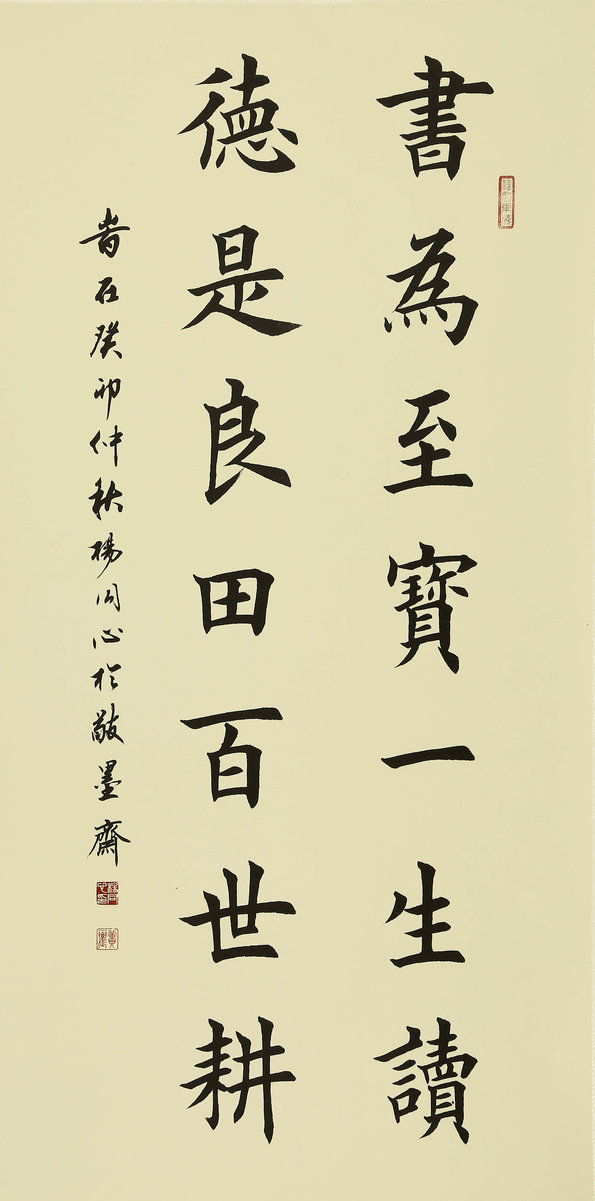 書為至寶一生讀
德是良田百世耕
昔在癸卯仲秋楊同心於敲墨齋